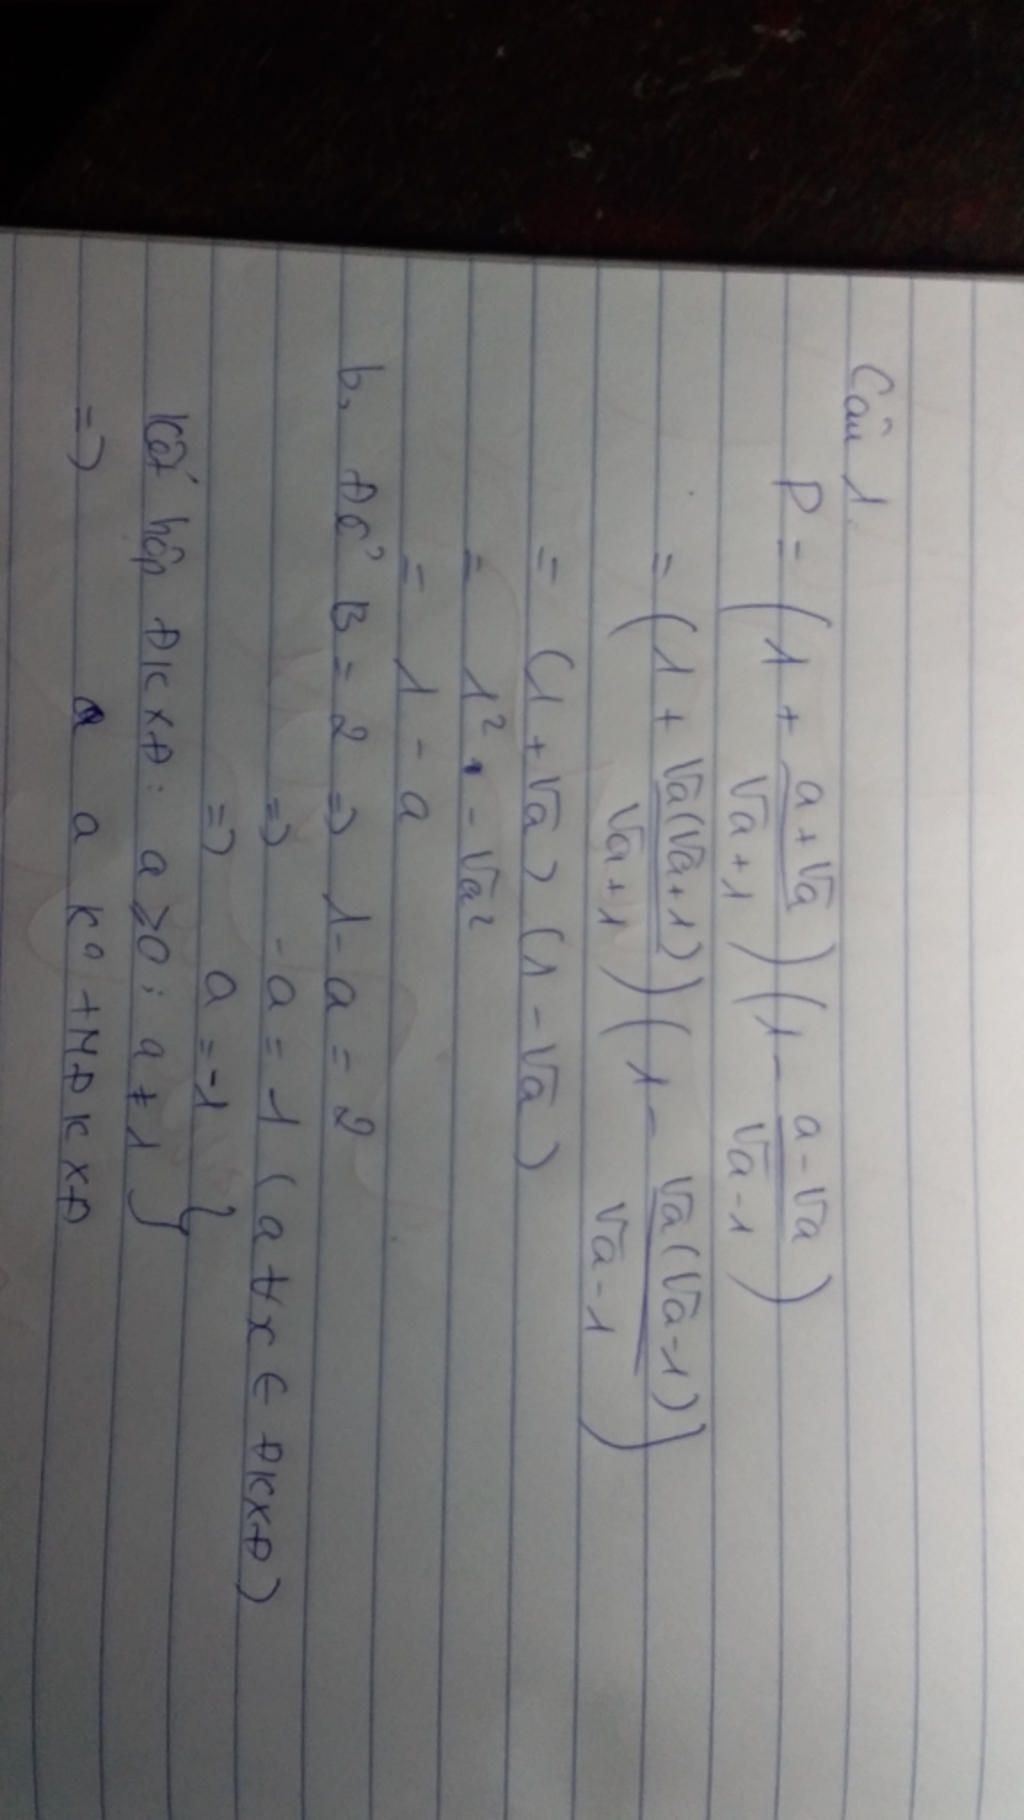 Câu 1.
P = (1 + a+√a / √a+1) (1 - a-√a / √a-1)
= (1 + √a(√a+1) / √a+1) (1 - √a(√a-1) / √a-1)
= (1+√a) (1-√a)
= 1² - √a²
= 1 - a
b, Để B = 2 => 1 - a = 2
=> -a = 1 (a ∀x ∈ ĐKXĐ)
=> a = -1 }
Kết hợp ĐKXĐ: a ≥ 0; a ≠ 1 }
=> a a Ko TMĐKXĐ